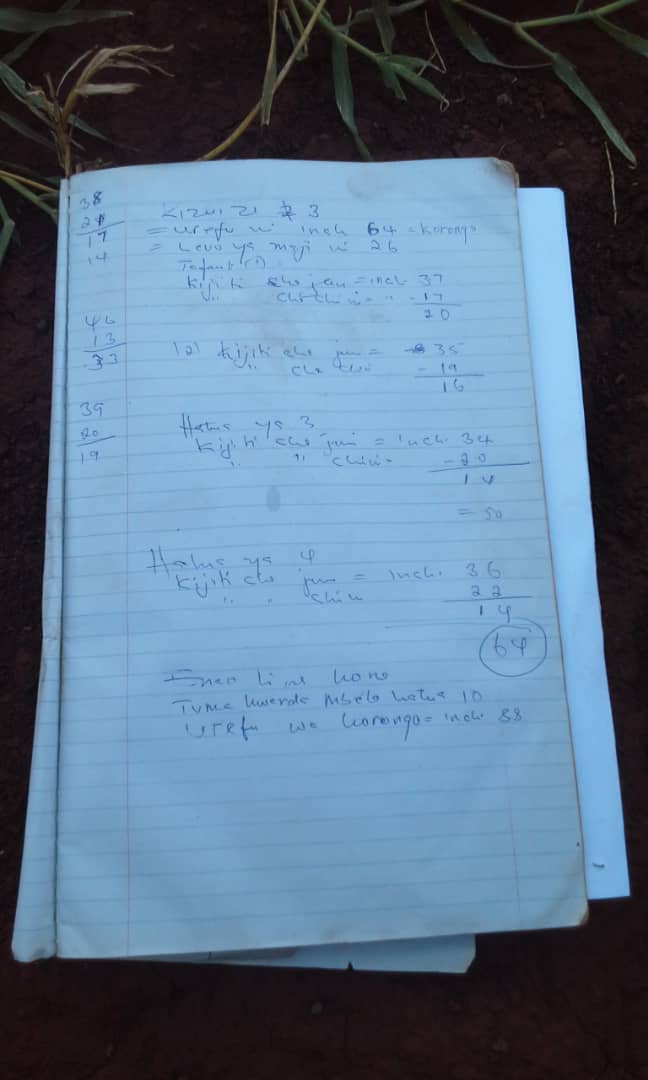 38
17
14
46
13
33
39
20
19
KIZUIZI 3
= urefu ni inch 64 = Korongo
= Levo ya maji ni 26
Tofauti (1) =
Kijiti cha juu = inch 37
" cha chini = " - 17
20
(2) Kijiti cha juu = 35
" cha chini - 19
16
Hatua ya 3
Kijiti cha juu = inch. 34
" " chini - 20
14
= 50
Hatua ya 4
Kijiti cha juu = inch. 36
" " chini 22
14
64
Eneo
Tume kwenda mbele hatua 10
Urefu wa korongo = inch 88